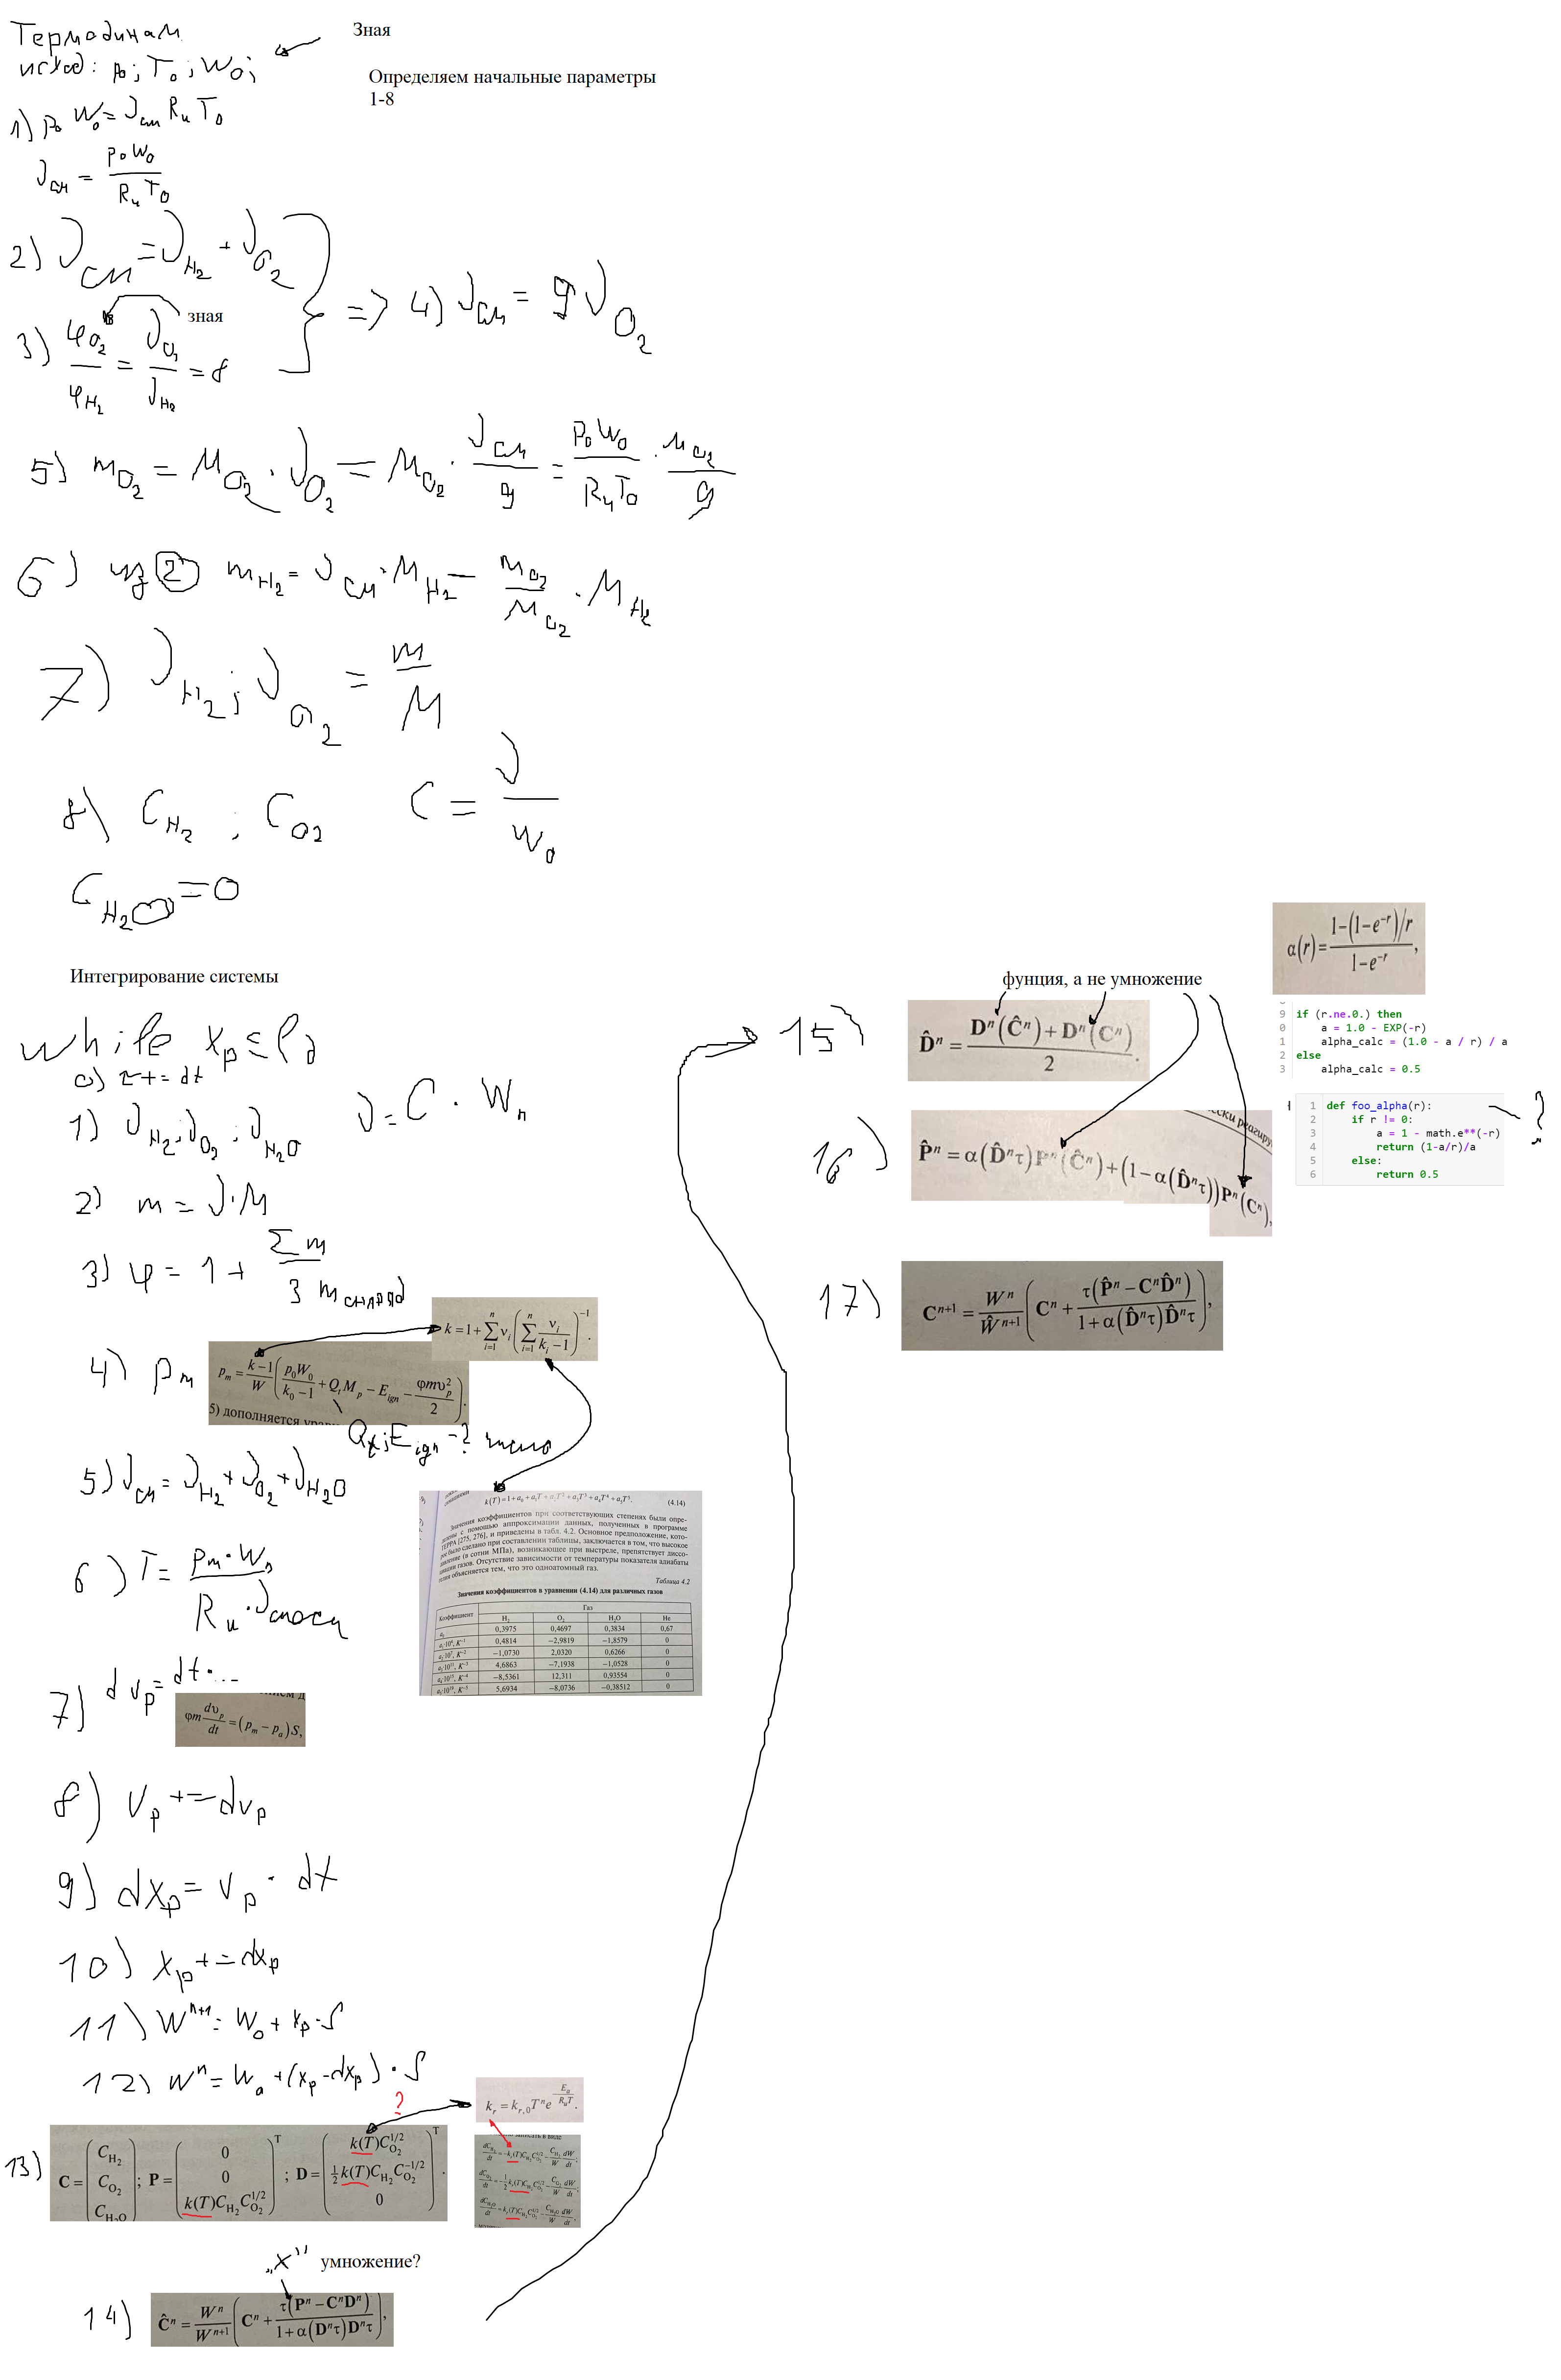 Термодинам
исход: p₀; T₀; W₀;
Зная
Определяем начальные параметры
1-8
1) p₀ W₀ = ν см Rи T₀
ν см = p₀W₀ / RиT₀
2) ν см = ν H₂ + ν O₂
зная
3) φO₂ / φH₂ = νO₂ / νH₂ = 8
=> 4) ν см = 9 ν O₂
5) mO₂ = MO₂ · νO₂ = MO₂ · ν см / 9 = p₀W₀ / RиT₀ · MO₂ / 9
6) из 2 mH₂ = ν см · MH₂ − mO₂ / MO₂ · MH₂
7) νH₂; νO₂ = m / M
8) CH₂ ; CO₂ C = ν / W₀
CH₂O = 0
Интегрирование системы
while xp ≤ lд
0) τ += dt
1) νH₂; νO₂; νH₂O ν = C · Wn
2) m = ν · M
3) φ = 1 + Σm / 3 m снаряд
k = 1 + Σ νi ( Σ νi / (ki − 1) )⁻¹.
4) pm
pm = (k − 1)/W ( p₀W₀/(k₀ − 1) + QtMp − Eign − φmυp²/2 ).
5) дополняется
Eign - ? число
5) ν см = νH₂ + νO₂ + νH₂O
k(T) = 1 + a₀ + a₁T + a₂T² + a₃T³ + a₄T⁴ + a₅T⁵. (4.14)
Значения коэффициентов при соответствующих степенях были опре-
делены с помощью аппроксимации данных, полученных в программе
ТЕРРА [275, 276], и приведены в табл. 4.2. Основное предположение, кото-
рое было сделано при составлении таблицы, заключается в том, что высокое
давление (в сотни МПа), возникающее при выстреле, препятствует диссо-
циации газов. Отсутствие зависимости от температуры показателя адиабаты
гелия объясняется тем, что это одноатомный газ.
Таблица 4.2
Значения коэффициентов в уравнении (4.14) для различных газов
Коэффициент Газ
H₂ O₂ H₂O He
a₀ 0,3975 0,4697 0,3834 0,67
a₁·10⁴, K⁻¹ 0,4814 −2,9819 −1,8579 0
a₂·10⁷, K⁻² −1,0730 2,0320 0,6266 0
a₃·10¹¹, K⁻³ 4,6863 −7,1938 −1,0528 0
a₄·10¹⁵, K⁻⁴ −8,5361 12,311 0,93554 0
a₅·10¹⁹, K⁻⁵ 5,6934 −8,0736 −0,38512 0
6) T = pm · Wn / Rи · ν смеси
7) dvp = dt · ...
φm dυp/dt = (pm − pa)S,
8) vp += dvp
9) dxp = vp · dt
10) xp += dxp
11) Wⁿ⁺¹ = W₀ + xp · S
12) Wⁿ = W₀ + (xp − dxp) · S
?
kr = kr,0 Tⁿ e Ea/RuT.
записать в виде
dCH₂/dt = −kr(T)CH₂CO₂^1/2 − CH₂/W dW/dt;
dCO₂/dt = −1/2 kr(T)CH₂CO₂^1/2 − CO₂/W dW/dt;
dCH₂O/dt = kr(T)CH₂CO₂^1/2 − CH₂O/W dW/dt,
13) C = ( CH₂ CO₂ CH₂O ); P = ( 0 0 k(T)CH₂CO₂^1/2 )ᵀ; D = ( k(T)CO₂^1/2 1/2 k(T)CH₂CO₂^−1/2 0 )ᵀ.
„x” умножение?
14) Ĉⁿ = Wⁿ/Wⁿ⁺¹ ( Cⁿ + τ(Pⁿ − CⁿDⁿ) / (1 + α(Dⁿτ)Dⁿτ) ),
α(r) = (1 − (1 − e⁻ʳ)/r) / (1 − e⁻ʳ),
фунция, а не умножение
15) D̂ⁿ = ( Dⁿ(Ĉⁿ) + Dⁿ(Cⁿ) ) / 2.
9 if (r.ne.0.) then
0 a = 1.0 - EXP(-r)
1 alpha_calc = (1.0 - a / r) / a
2 else
3 alpha_calc = 0.5
1 def foo_alpha(r):
2 if r != 0:
3 a = 1 - math.e**(-r)
4 return (1-a/r)/a
5 else:
6 return 0.5
?
16) P̂ⁿ = α(D̂ⁿτ)Pⁿ(Ĉⁿ) + (1 − α(D̂ⁿτ))Pⁿ(Cⁿ),
17) Cⁿ⁺¹ = Wⁿ/Ŵⁿ⁺¹ ( Cⁿ + τ(P̂ⁿ − CⁿD̂ⁿ) / (1 + α(D̂ⁿτ)D̂ⁿτ) ),